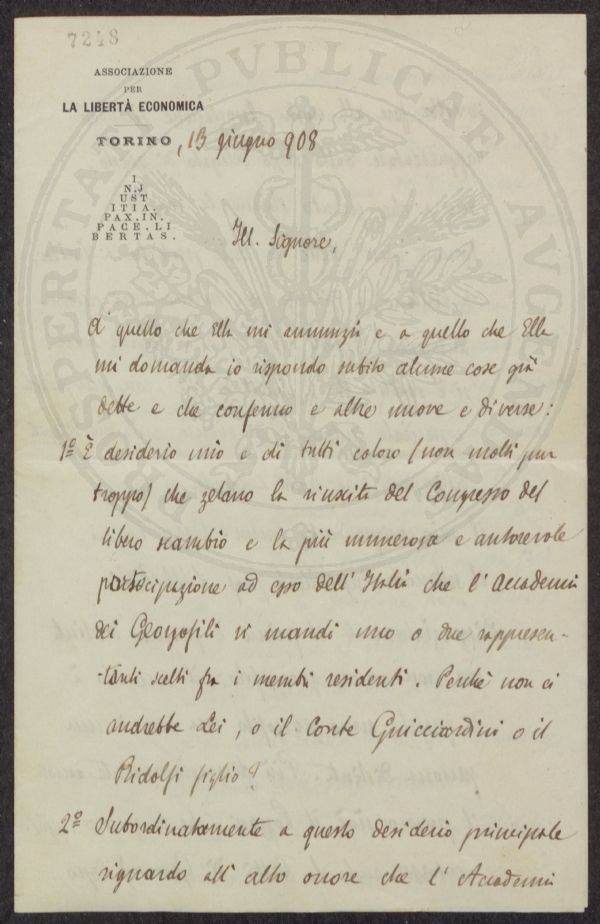 7248
ASSOCIAZIONE
PER
LA LIBERTÀ ECONOMICA
TORINO, 13 giugno 908
I
N.J
UST
ITIA.
PAX.IN.
PACE.LI
BERTAS.
Ill. Signore,
A quello che Ella mi annunzia e a quello che Ella
mi domanda io rispondo subito alcune cose già
dette e che confermo e altre nuove e diverse:
1º È desiderio mio e di tutti coloro (non molti pur
troppo) che zelano la riuscita del Congresso del
libero scambio e la più numerosa e autorevole
partecipazione ad esso dell'Italia che l'Accademia
dei Georgofili vi mandi uno o due rappresen-
-tanti scelti fra i membri residenti. Perché non ci
andrebbe Lei, o il Conte Guicciardini o il
Ridolfi figlio?
2º Subordinatamente a questo desiderio principale
riguardo all'alto onore che l'Accademia